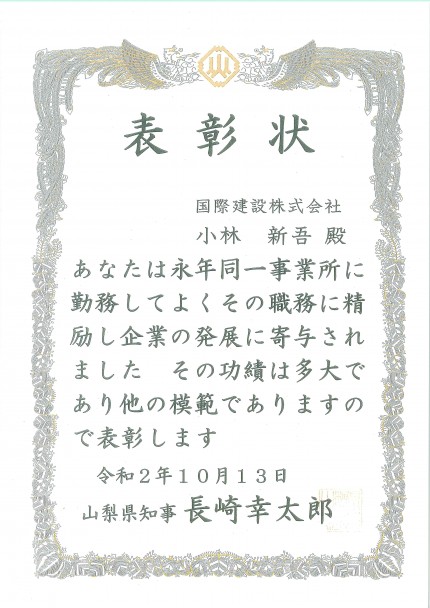 表彰状
国際建設株式会社
小林　新吾 殿
あなたは永年同一事業所に
勤務してよくその職務に精
励し企業の発展に寄与され
ました　その功績は多大で
あり他の模範でありますの
で表彰します
令和２年１０月１３日
山梨県知事 長崎幸太郎